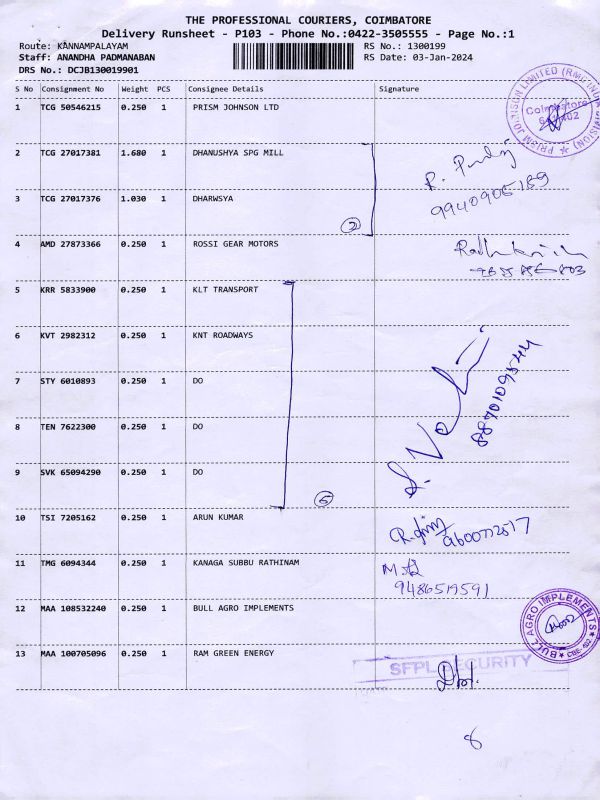 THE PROFESSIONAL COURIERS, COIMBATORE
Delivery Runsheet - P103 - Phone No.:0422-3505555 - Page No.:1
Route: KANNAMPALAYAM
Staff: ANANDHA PADMANABAN
DRS No.: DCJB130019901
RS No.: 1300199
RS Date: 03-Jan-2024
S No Consignment No Weight PCS Consignee Details Signature
1 TCG 50546215 0.250 1 PRISM JOHNSON LTD
PRISM JOHNSON LIMITED (RMC INDIA DIVISION)
Coimbatore
2 TCG 27017381 1.680 1 DHANUSHYA SPG MILL
3 TCG 27017376 1.030 1 DHARWSYA
2
9940905189
4 AMD 27873366 0.250 1 ROSSI GEAR MOTORS
5 KRR 5833900 0.250 1 KLT TRANSPORT
6 KVT 2982312 0.250 1 KNT ROADWAYS
7 STY 6010893 0.250 1 DO
8 TEN 7622300 0.250 1 DO
9 SVK 65094290 0.250 1 DO
5
10 TSI 7205162 0.250 1 ARUN KUMAR
11 TMG 6094344 0.250 1 KANAGA SUBBU RATHINAM
9486519591
12 MAA 108532240 0.250 1 BULL AGRO IMPLEMENTS
BULL AGRO IMPLEMENTS
13 MAA 100705096 0.250 1 RAM GREEN ENERGY
SFPL SECURITY
8